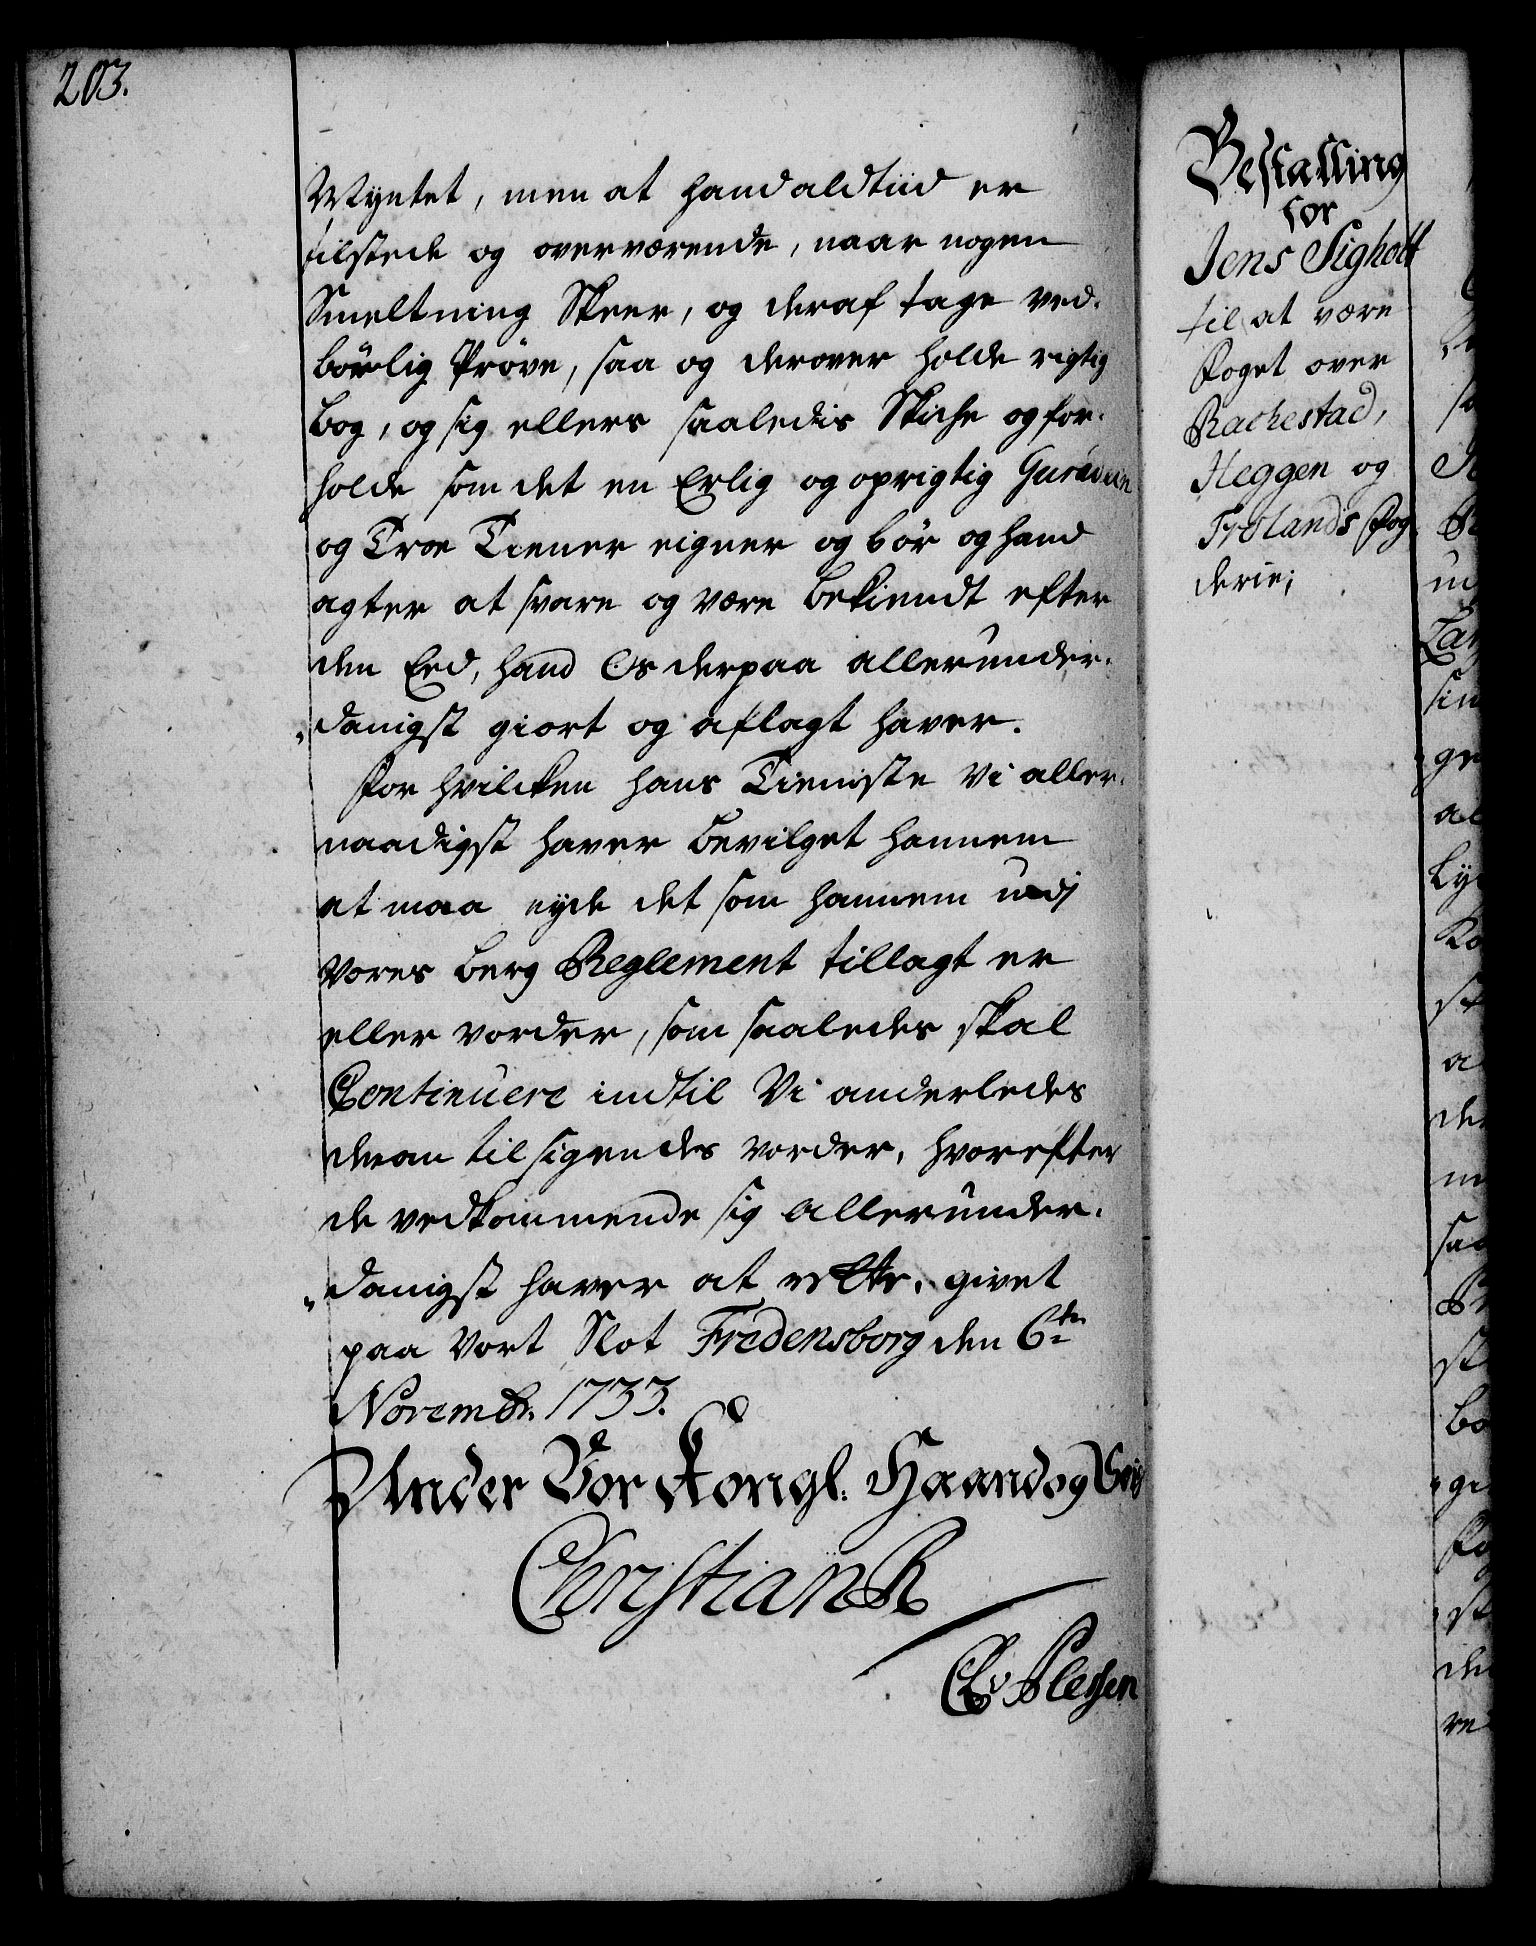 203.
Myntet, men at hand aldtiid er
tilstede og overværende, naar nogen
Smeltning Skeer, og deraf tage ved-
börlig Pröve, saa og derover holde rigtig
bog, og sig ellers saaledis Skiche og for-
holde som det en Erlig og oprigtig Guardein
og Troe Tiener eigner og bör og hand
agter at svare og være bekiendt efter
den Eed, hand Os derpaa allerunder-
danigst giort og aflagt haver.
For hvilcken hans Tieniste Vi aller-
naadigst haver bevilget hannem
at maa nyde det som hannem udj
Vores berg Reglement tillagt er
eller vorder, som saaledes skal
Continuere indtil Vi anderledes
deran tilsigendes vorder, hvorefter
de vedkommende sig allerunder-
danigst haver at rette, givet
paa Vort Slot Fredensborg den 6te
Novembr. 1733.
Under Vor Kongl. Haand og
Christian R
CAv Plessen
Bestalling
for
Jens Sigholt
til at være
Foget over
Rachestad,
Heggen og
Frölands Fog-
derie;